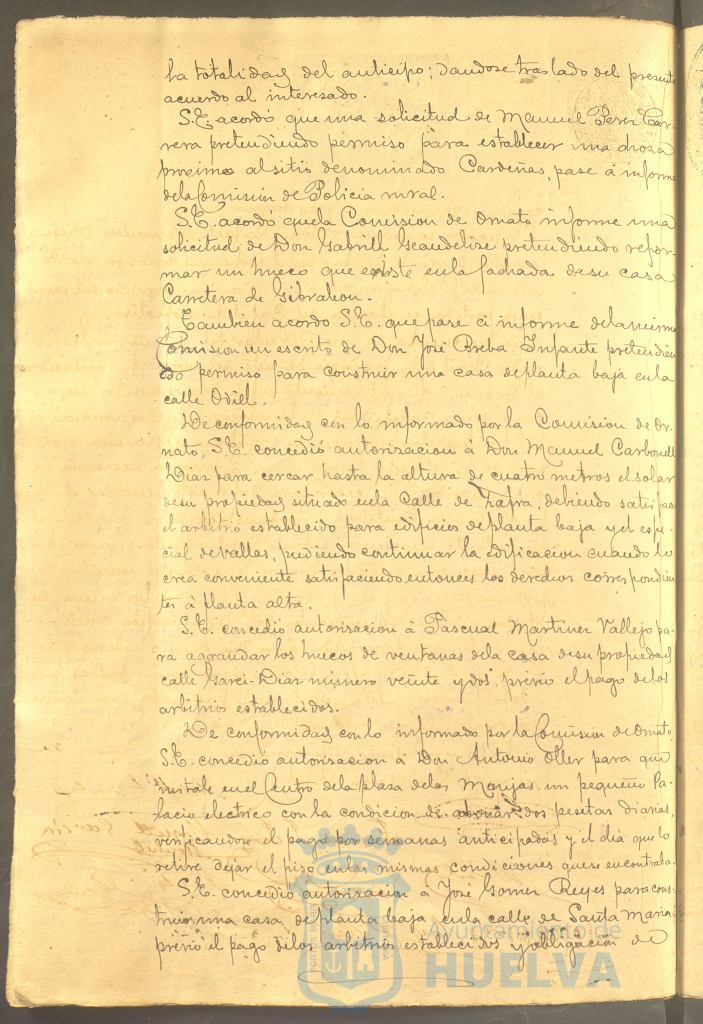 la totalidad del anticipo; dandose traslado del presente
acuerdo al interesado.
S.E. acordó que una solicitud de Manuel Perez Car-
rera pretendiendo permiso para establecer una choza
proxima al sitio denominado Cardeñas, pase á informe
de la Comision de Policia rural.
S.E. acordó que la Comision de Ornato informe una
solicitud de Don Gabriel pretendiendo refor-
mar un hueco que existe en la fachada de su casa
Carretera de Gibraleon.
Tambien acordo S.E. que pase á informe de la misma
Comision un escrito de Don José Breba Infante pretendien
do permiso para construir una casa de planta baja en la
calle Odiel.
De conformidad con lo informado por la Comision de Or-
nato, S.E. concedió autorizacion á Don Manuel Carbonell
Diaz para cercar hasta la altura de cuatro metros el solar
de su propiedad situado en la Calle de Zafra, debiendo satisfacer
el arbitrio establecido para edificios de planta baja y el espe-
cial de vallas, pudiendo continuar la edificacion cuando lo
crea conveniente satisfaciendo entonces los derechos correspondien
tes á planta alta.
S.E. concedió autorizacion á Pascual Martinez Vallejo pa-
ra agrandar los huecos de ventanas de la casa de su propiedad
calle Garci-Diaz número veinte y dos, prévio el pago de los
arbitrios establecidos.
De conformidad con lo informado por la Comision de Ornato,
S.E. concedió autorizacion á Don Antonio Oller para que
instale en el Centro de la plaza de las Monjas un pequeño Pa-
lacio electrico con la condicion de abonar dos pesetas diarias,
verificandose el pago por semanas anticipadas y el dia que lo
retire dejar el piso en las mismas condiciones que se encontraba.
S.E. concedió autorizacion á José Gomez Reyes para cons-
truir una casa de planta baja en la calle de Santa Maria
prévio el pago de los arbitrios establecidos y obligacion de
Ayuntamiento de
HUELVA